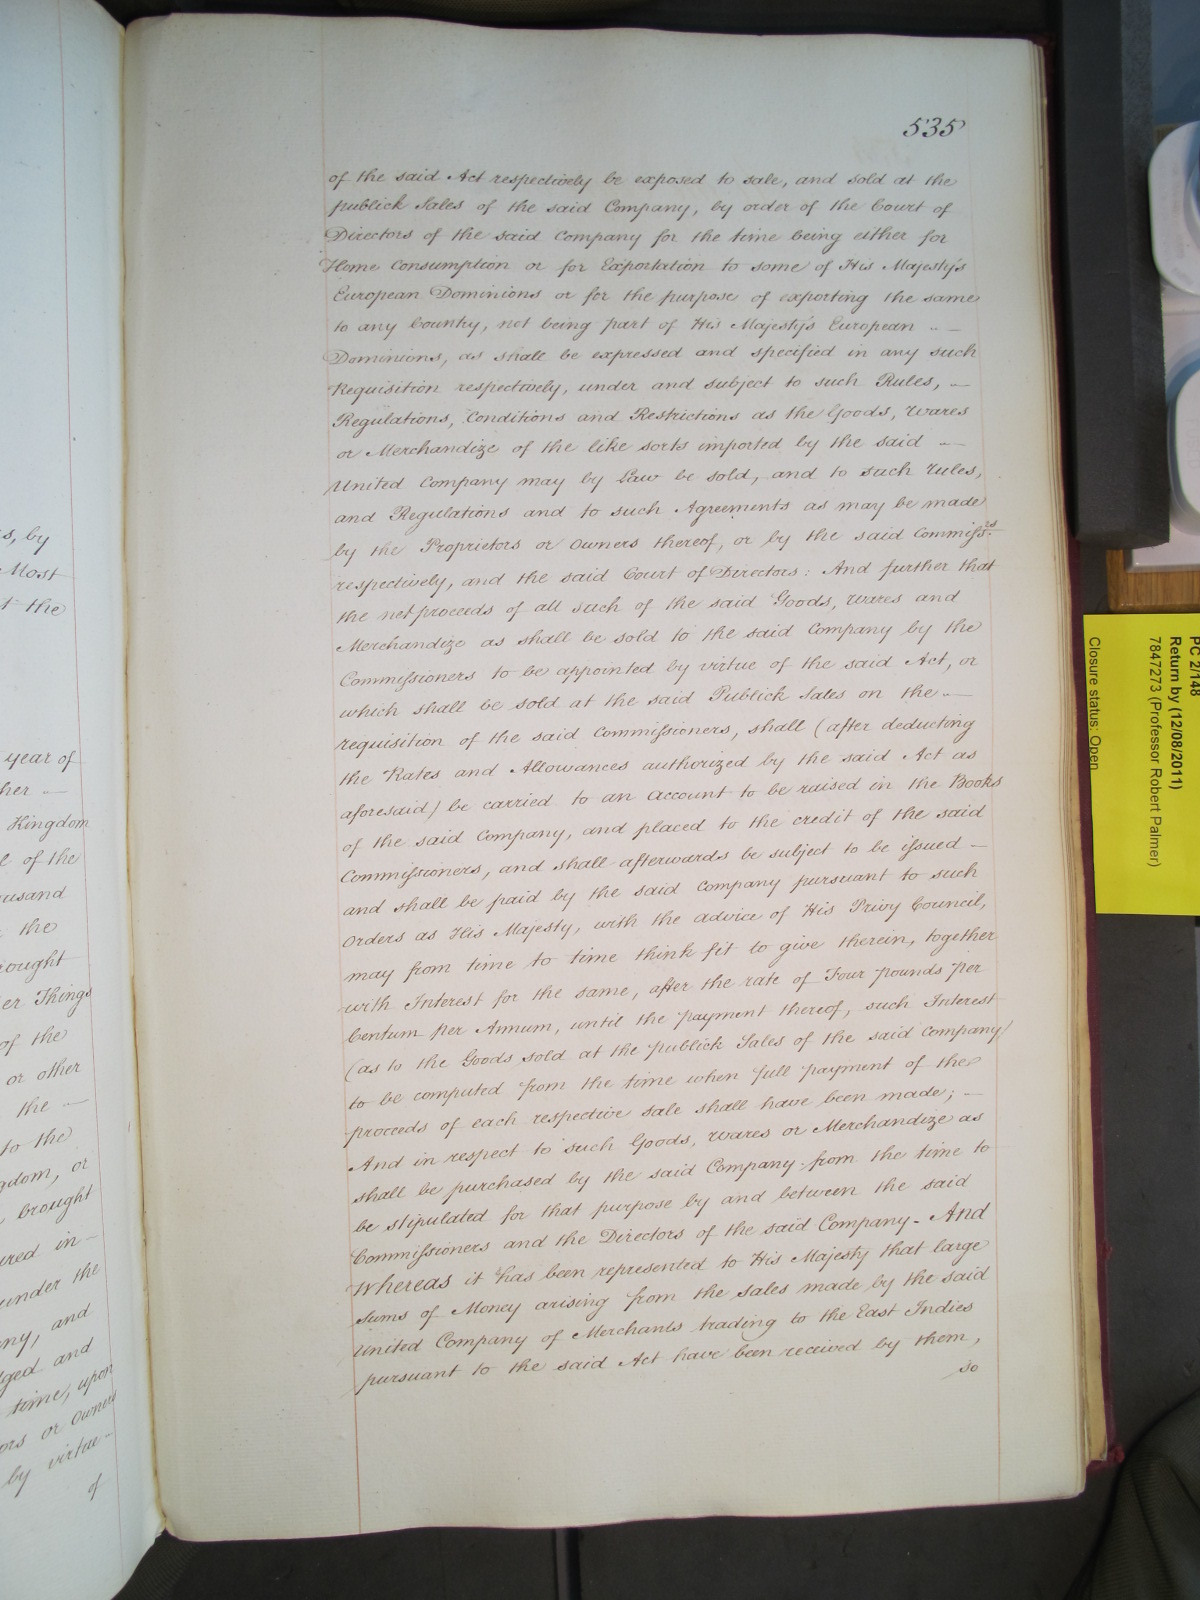 s, by
Most
t the
year of
her —
Kingdom
l of the
usand
the
rought
er Things
of the
or other
the —
to the
gdom, or
, brought
ured in-
under the
ny, and
dged and
time, upon
ors or Owners
by virtue-
of
535
of the said Act respectively be exposed to sale, and sold at the
publick Sales of the said Company, by order of the Court of
Directors of the said Company for the time being either for
Home Consumption or for Exportation to some of His Majesty's
European Dominions or for the purpose of exporting the same
to any Country, not being part of His Majesty's European —
Dominions, as shall be expressed and specified in any such
Requisition respectively, under and subject to such Rules, —
Regulations, Conditions and Restrictions as the Goods, Wares
or Merchandize of the like sorts imported by the said —
United Company may by Law be sold, and to such rules,
and Regulations and to such Agreements as may be made
by the Proprietors or Owners thereof, or by the said Commiss.rs
respectively, and the said Court of Directors: And further that
the net proceeds of all such of the said Goods, Wares and
Merchandize as shall be sold to the said Company by the
Commissioners to be appointed by virtue of the said Act, or
which shall be sold at the said Publick Sales on the —
requisition of the said Commissioners, shall (after deducting
the Rates and Allowances authorized by the said Act as
aforesaid) be carried to an account to be raised in the Books
of the said Company, and placed to the credit of the said
Commissioners, and shall afterwards be subject to be issued —
and shall be paid by the said Company pursuant to such
Orders as His Majesty, with the advice of His Privy Council,
may from time to time think fit to give therein, together
with Interest for the same, after the rate of Four pounds per
Centum per Annum, until the payment thereof, such Interest
(as to the Goods sold at the publick Sales of the said Company)
to be computed from the time when full payment of the
proceeds of each respective sale shall have been made; —
And in respect to such Goods, Wares or Merchandize as
shall be purchased by the said Company from the time to
be stipulated for that purpose by and between the said
Commissioners and the Directors of the said Company - And
Whereas it has been represented to His Majesty that large
sums of Money arising from the sales made by the said
United Company of Merchants trading to the East Indies
pursuant to the said Act have been received by them,
so
PC 2/148
Return by (12/08/2011)
7847273 (Professor Robert Palmer)
Closure status: Open